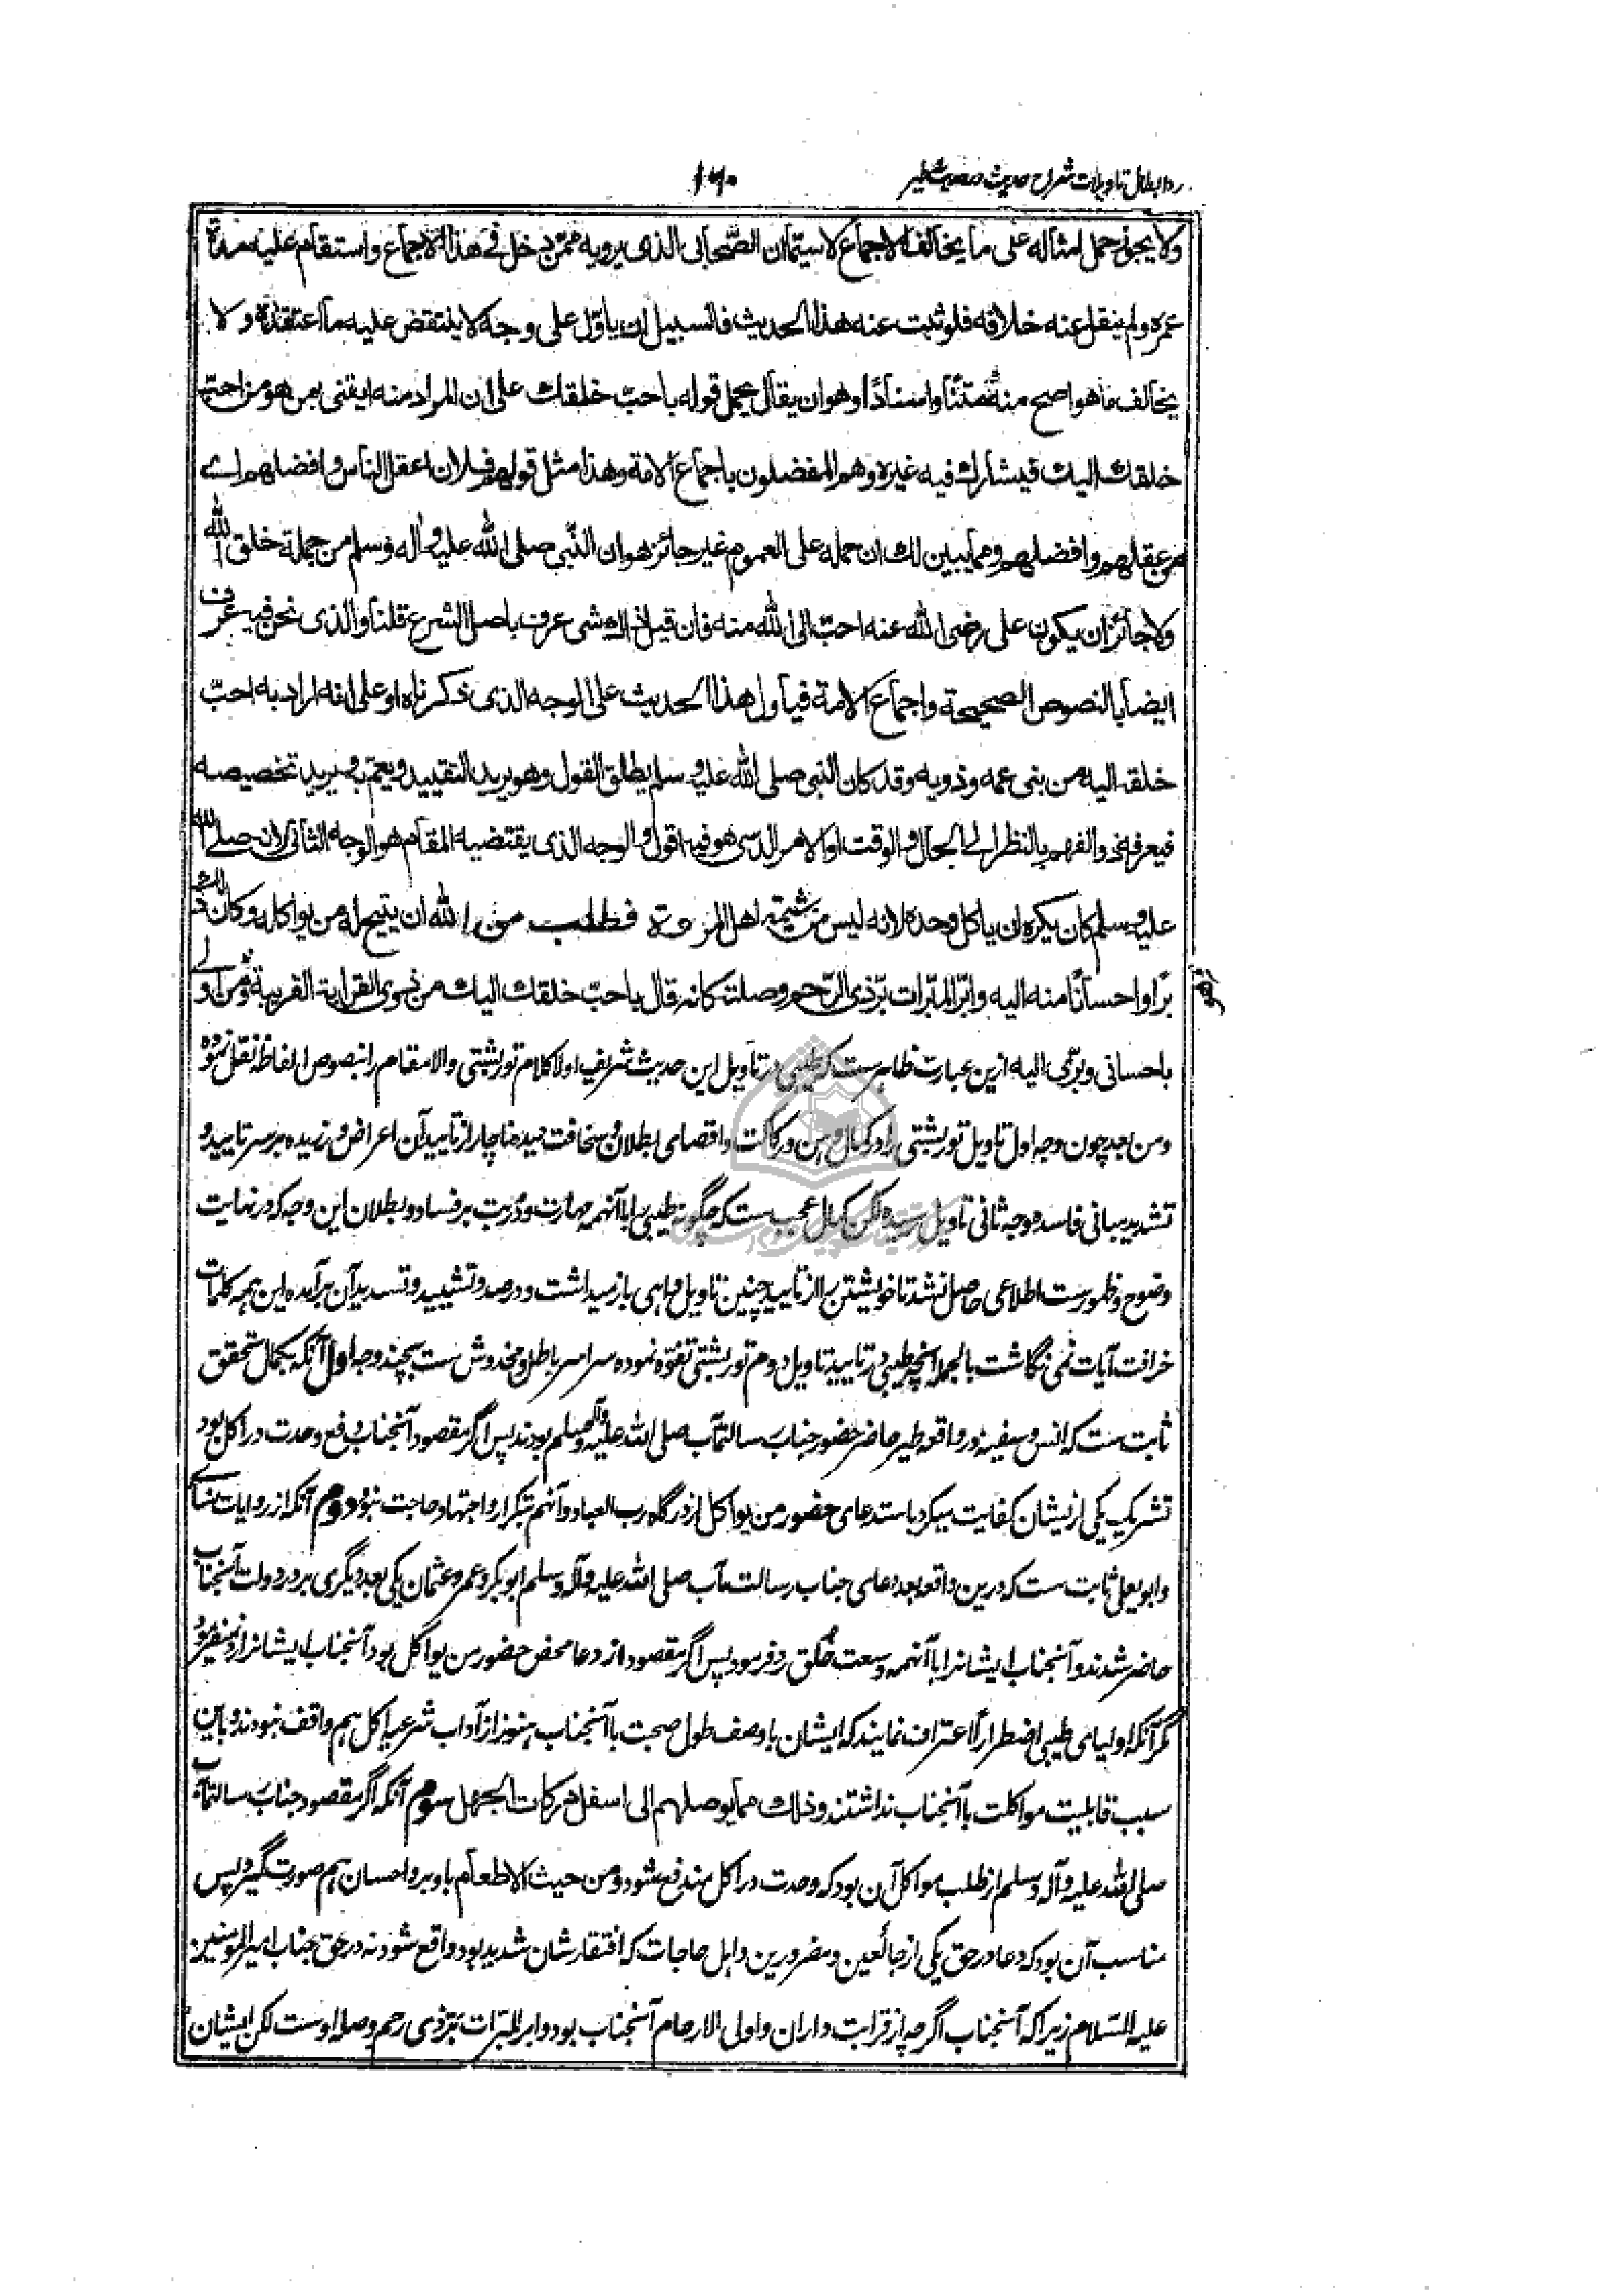 رد ابطال تاویلات شراح حدیث
۱۶۰
ولا يجوز حمل امثاله على ما يخالف الاجماع لا سيّما ان الصّحابى الذى يرويه ممّن دخل فى هذا الاجماع و استقام عليه مدة
عمره و لم ينقل عنه خلافه فلو ثبت عنه هذا الحديث فالسبيل ان ياوّل على وجه لا ينتقض عليه ما اعتقده و لا
يخالف ما هو اصح منه متنًا و اسنادًا و هو ان يقال يحمل قوله باحبّ خلقك على ان المراد منه ايتنى بمن هو من احبّ
خلقك اليك فيشارك فيه غيره و هم المفضلون باجماع الامة و هذا مثل قولهم فلان اعقل الناس و افضلهم اے
من عقلهم و افضلهم و ممّا يبين لك ان حمله على العموم غير جائز هو ان النّبى صلى الله عليه و اله و سلم من جملة خلق الله
و لا جائز ان يكون على رضى الله عنه احبّ الى الله منه فان قيل ذلك شى عرف باصل الشرع قلنا و الذى نحن فيه عرف
ايضا بالنصوص الصحيحة و اجماع الامة فيأول هذا الحديث على الوجه الذى ذكرناه او على انه اراد به احبّ
خلقه اليه من بنى عمه و ذويه و قد كان النبى صلى الله عليه و سلم يطلق القول و هو يريد التقييد و يعم به و يريد تخصيصه
فيعرفه ذو الفهم بالنظر الى الحال و الوقت او الامر الذى هو فيه اقول و الوجه الذى يقتضيه المقام هو الوجه الثانى لانه صلے الله
عليه و سلم كان يكره ان ياكل وحده لانه ليس من شيمة اهل المروة فطلب من الله ان يتيح له من يواكله و كان ذلك
برًا و احسانًا منه اليه و ابرّ المبرّات برّ ذى الرّحم و صلته كانه قال باحبّ خلقك اليك من ذوى القرابة القريبة و من اولے
باحسانى و برّى اليه ازین عبارت ظاهر ست که طیبی در تاویل این حدیث شریف اولا کلام توربشتی والامقام را بنصوص الفاظ نقل نموده
و من بعد چون وجه اول تاویل توربشتی را در کمال وهن و رکاکت و اقصای بطلان و سخافت دید ناچار از تایید آن اعراض ورزیده بر سر تایید و
تشدید مبانی فاسده وجه ثانی تاویل رسیده لکن کمال عجب ست که چگونه طیبی را با آنهمه مهارت و دُربت بر فساد و بطلان این وجه که در نهایت
وضوح و ظهورست اطلاعی حاصل نشد تا خویشتن را از تایید چنین تاویل واهی باز میداشت و در صدد تشیید و تسدید آن برآمده این همه کلمات
خرافت آیات نمی نگاشت بالجمله آنچه طیبی در تایید تاویل دوم توربشتی تفوّه نموده سراسر باطل و مخدوش ست بچند وجه اول آنکه بکمال تحقق
ثابت ست که انس و سفینه در واقعه طیر حاضر حضور جناب رسالتمآب صلی الله علیه و آله و سلم بودند پس اگر مقصود آنجناب رفع وحدت در اکل بود
تشریک یکی از یشان کفایت میکرد باستدعای حضور من یواکل از درگاه رب العباد و آنهم بتکرار و اجتهاد حاجت نبود دوم آنکه از روایات نسائے
و ابو یعلی ثابت ست که درین واقعه بعد دعای جناب رسالت مآب صلی الله علیه و آله و سلم ابو بکر و عمر و عثمان یکی بعد دیگری بر در دولت آنجناب
حاضر شدند و آنجناب ایشانرا با آنهمه وسعت خُلق رد فرمود پس اگر مقصود از دعا محض حضور من یواکل بود آنجناب ایشانرا رد نمیفرمود
مگر آنکه اولیای طیبی اضطرارًا اعتراف نمایند که ایشان با وصف طول صحبت با آنجناب هنوز از آداب شرعیه اکل هم واقف نبودند و باین
سبب قابلیت مواکلت با آنجناب نداشتند و ذلك مما يوصلهم الى اسفل دركات الجهل سوم آنکه اگر مقصود جناب رسالتمآب
صلی الله علیه و آله و سلم از طلب مواکل آن بود که وحدت در اکل مندفع شود و من حیث الاطعام با و بر و احسان هم صورت گیرد پس
مناسب آن بود که دعا در حق یکی از جائعین و مضرورین و اهل حاجات که افتقارشان شدید بود واقع شود نه در حق جناب امیرالمومنین
علیه السّلام زیرا که آنجناب اگرچه از قرابت داران و اولی الارحام آنجناب بود و ابر المبرّات برّ ذی رحم و صله اوست لکن ایشان